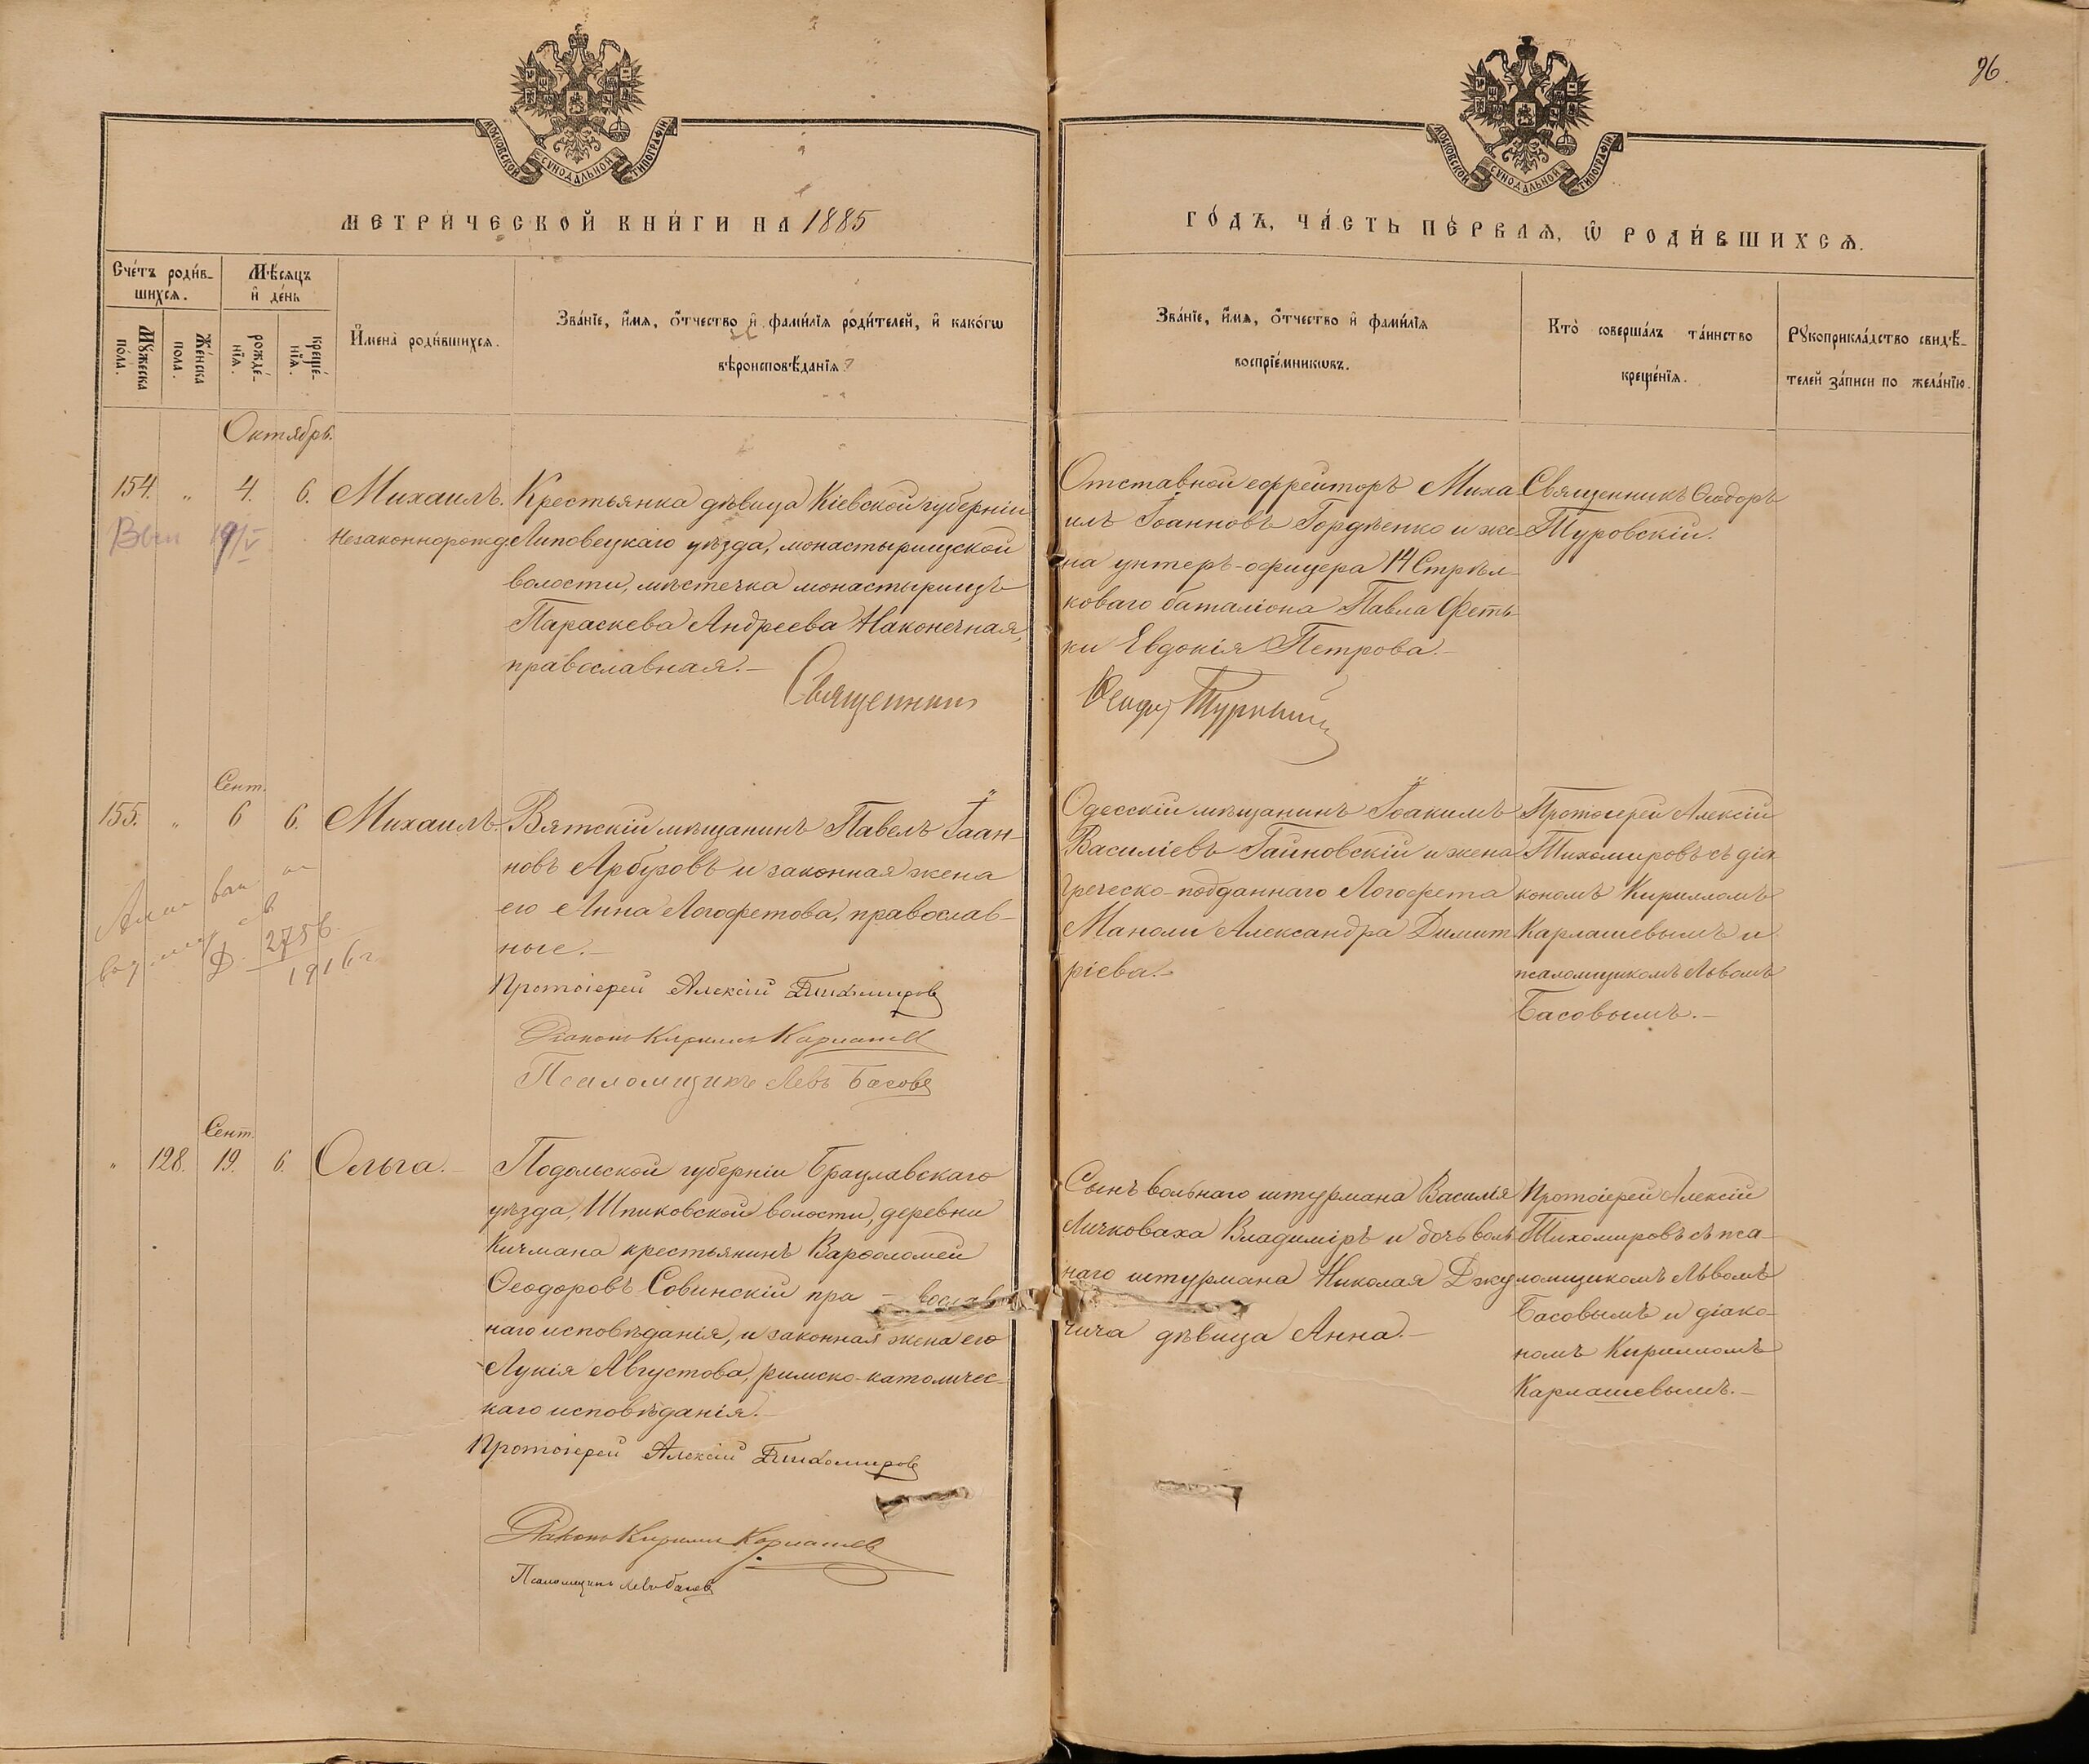 96.
МОСКОВСКОЙ СѴНОДАЛЬНОЙ ТИПОГРАФІИ
МОСКОВСКОЙ СѴНОДАЛЬНОЙ ТИПОГРАФІИ
МЕТРИ́ЧЕСКОЙ КНИ́ГИ НА 1885
ГО́ДЪ, ЧА́СТЬ ПЕ́РВАЯ, Ѡ҆ РОДИ́ВШИХСЯ.
Сче́тъ роди́в-
шихся.
Мꙋ́жеска
по́ла.
Же́нска
пола.
Мѣ́сяцъ
и҆ де́нь
рожде́-
нїя.
креще́-
нїя.
И҆мена̀ роди́вшихся.
Зва́нїе, и҆́мя, ѻ҆́тчество и҆ фами́лїя роди́телей, и҆ како́гѡ
вѣроисповѣ́данїя.
Зва́нїе, и҆́мя, ѻ҆́тчество и҆ фами́лїя
воспрїе́мникѡвъ.
Кто̀ соверша́лъ та́инство
креще́нїя.
Рꙋкоприкла́дство свидѣ́-
телей за́писи по жела́нїю.
Октябрь.
154. „ 4. 6. Михаилъ.
незаконнорожд.
19/V
Крестьянка дѣвица Кіевской губерніи
Липовецкаго уѣзда, монастырищской
волости, мѣстечка монастырищъ
Параскева Андреева Наконечная,
православная.—
Священникъ
Отставной ефрейторъ Миха-
илъ Іоанновъ Гордѣенко и же-
на унтеръ-офицера 14 Стрѣл-
коваго баталіона Павла Феть-
ки Евдокія Петрова.—
Священникъ Ѳеодоръ
Туровскій.
Сент.
155. „ 6 6. Михаилъ.
Д. 2756.
1916 г.
Вятскій мѣщанинъ Павелъ Іоан-
новъ Арбузовъ и законная жена
его Анна Логофетова, православ-
ные.—
Протоіерей Алексій Тихомировъ
Діаконъ Кириллъ Карлашев
Псаломщикъ Левъ Басовъ
Одесскій мѣщанинъ Іоакимъ
Василіевъ Гайновскій и жена
Греческо-подданнаго Логофета
Маноли Александра Димит-
ріева.—
Протоіерей Алексій
Тихомировъ съ діа-
кономъ Кирилломъ
Карлашевымъ и
псаломщикомъ Львомъ
Басовымъ.—
Сент.
„ 128. 19. 6. Ольга.—
Подольской губерніи Брацлавскаго
уѣзда, Шпиковской волости, деревни
Кичмана крестьянинъ Варѳоломей
Ѳеодоровъ Совинскій пра - вослав
наго исповѣданія, и законная жена его
Лукія Августова, римско-католичес-
каго исповѣданія.—
Протоіерей Алексій Тихомировъ
Діаконъ Кириллъ Карлашев
Псаломщикъ Левъ Басовъ
Сынъ вольнаго штурмана Василія
Личковаха Владиміръ и дочь воль-
наго штурмана Николая Джу
чича дѣвица Анна.—
Протоіерей Алексій
Тихомировъ съ пса-
ломщикомъ Львомъ
Басовымъ и діако-
номъ Кирилломъ
Карлашевымъ.—